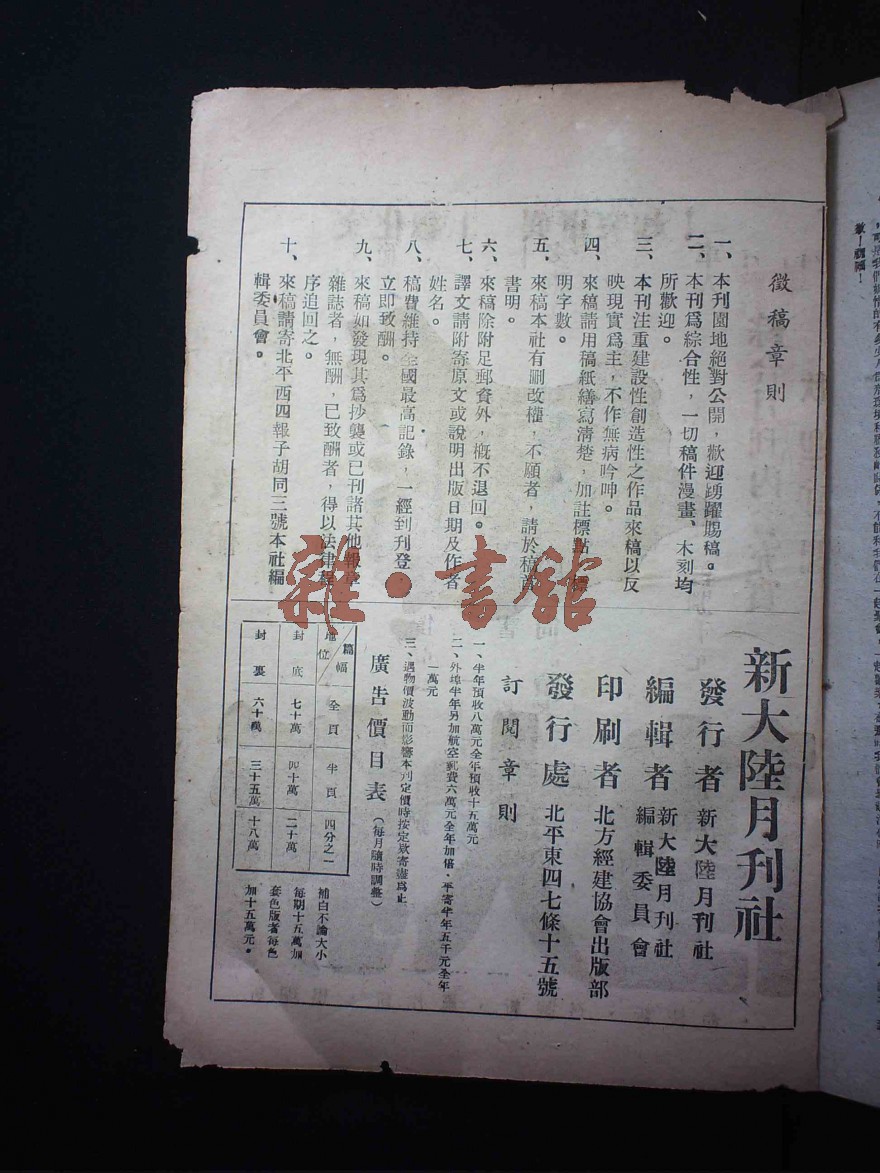 徵稿章則
一、本刊園地絕對公開，歡迎踴躍賜稿。
二、本刊爲綜合性，一切稿件漫畫、木刻均
所歡迎。
三、本刊注重建設性創造性之作品來稿以反
映現實爲主，不作無病吟呻。
四、來稿請用稿紙繕寫清楚，加註標點
明字數。
五、來稿本社有刪改權，不願者，請於稿
書明。
六、來稿除附足郵資外，槪不退回。
七、譯文請附寄原文或說明出版日期及作者
姓名。
八、稿費維持全國最高記錄，一經到刊登
立即致酬。
九、來稿如發現其爲抄襲或已刊諸其他報章
雜誌者，無酬，已致酬者，得以法律程
序追回之。
十、來稿請寄北平西四報子胡同三號本社編
輯委員會。
新大陸月刊社
發行者 新大陸月刊社
編輯者 新大陸月刊社
編輯委員會
印刷者 北方經建協會出版部
發行處 北平東四七條十五號
訂閱章則
一、半年預收八萬元全年預收十五萬元
二、外埠半年另加航空郵費六萬元全年加倍，平寄半年五千元全年
一萬元
三、遇物價波動而影響本刊定價時按定款寄盡爲止
廣告價目表（每月隨時調整）
篇幅 地位 全頁 半頁 四分之一
封底 七十萬 四十萬 二十萬
封裏 六十萬 三十五萬 十八萬
補白不論大小
每期十五萬加
套色版者每色
加十五萬元。
雜·書館